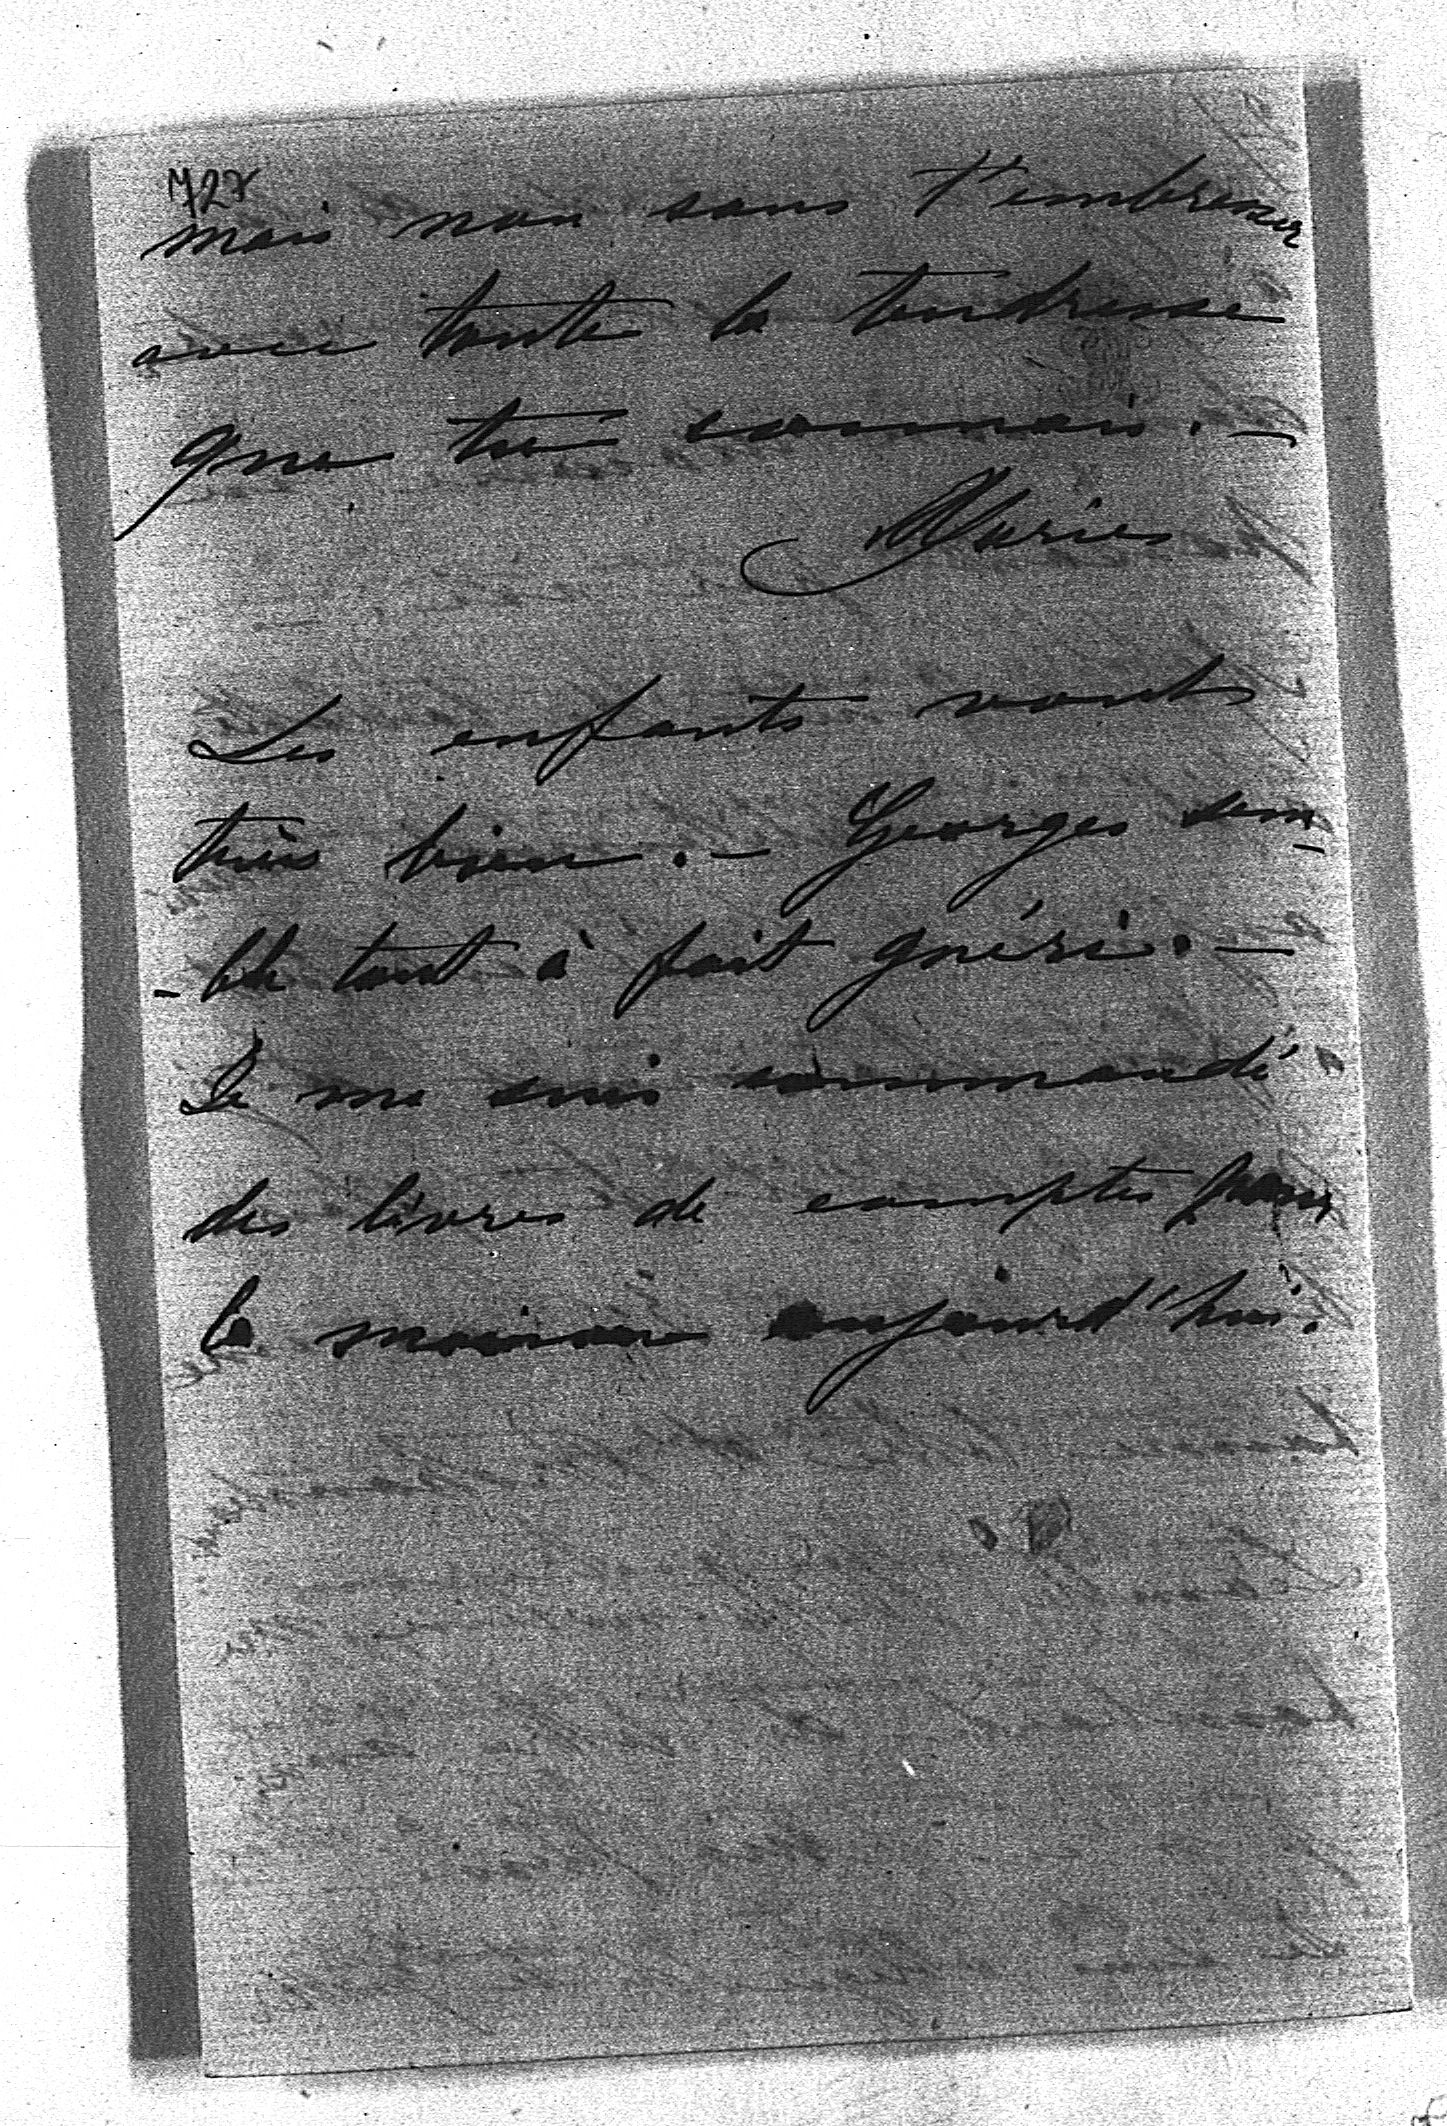 727
mais non sans t'embrasser
avec toute la tendresse
que tu connais. —
Marie
Les enfants vont
très bien. — Georges sem-
-ble tout à fait guéri. —
Je me suis commandé
des livres de comptes pour
la maison aujourd'hui.